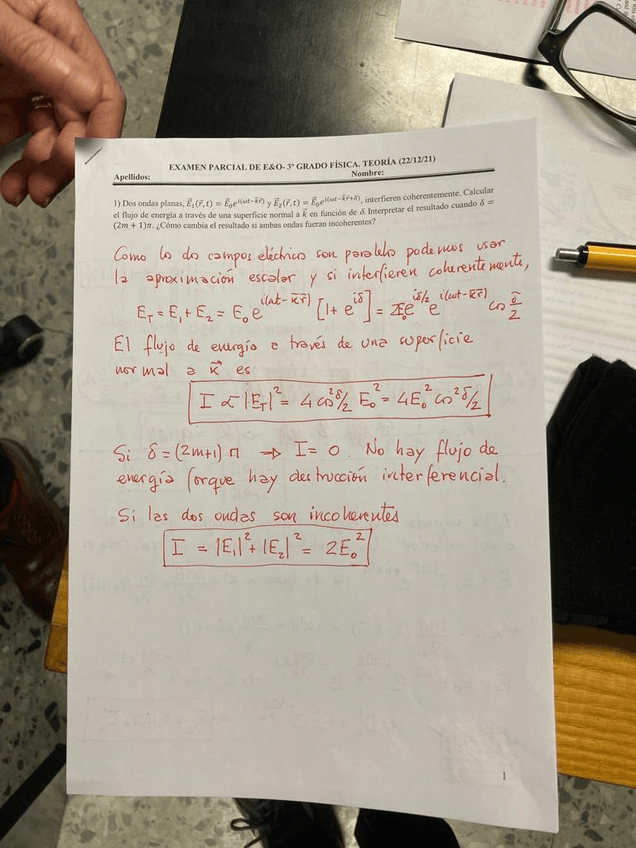 EXAMEN PARCIAL DE E&O- 3º GRADO FÍSICA. TEORÍA (22/12/21)
Apellidos: Nombre:
1) Dos ondas planas, E⃗₁(r⃗,t) = E⃗₀e^{i(ωt−k⃗r⃗)} y E⃗₂(r⃗,t) = E⃗₀e^{i(ωt−k⃗r⃗+δ)}, interfieren coherentemente. Calcular
el flujo de energía a través de una superficie normal a k⃗ en función de δ. Interpretar el resultado cuando δ =
(2m + 1)π. ¿Cómo cambia el resultado si ambas ondas fueran incoherentes?
Como los dos campos eléctricos son paralelos podemos usar
la aproximación escalar y si interfieren coherentemente,
E_T = E₁ + E₂ = E₀ e^{i(ωt−k⃗r⃗)} [1 + e^{iδ}] = 2E₀ e^{iδ/2} e^{i(ωt−k⃗r⃗)} cos δ/2
El flujo de energía a través de una superficie
normal a k⃗ es
I ∝ |E_T|² = 4 cos² δ/2 E₀² = 4E₀² cos² δ/2
Si δ = (2m+1) π ⇒ I = 0. No hay flujo de
energía porque hay destrucción interferencial.
Si las dos ondas son incoherentes
I = |E₁|² + |E₂|² = 2E₀²
1